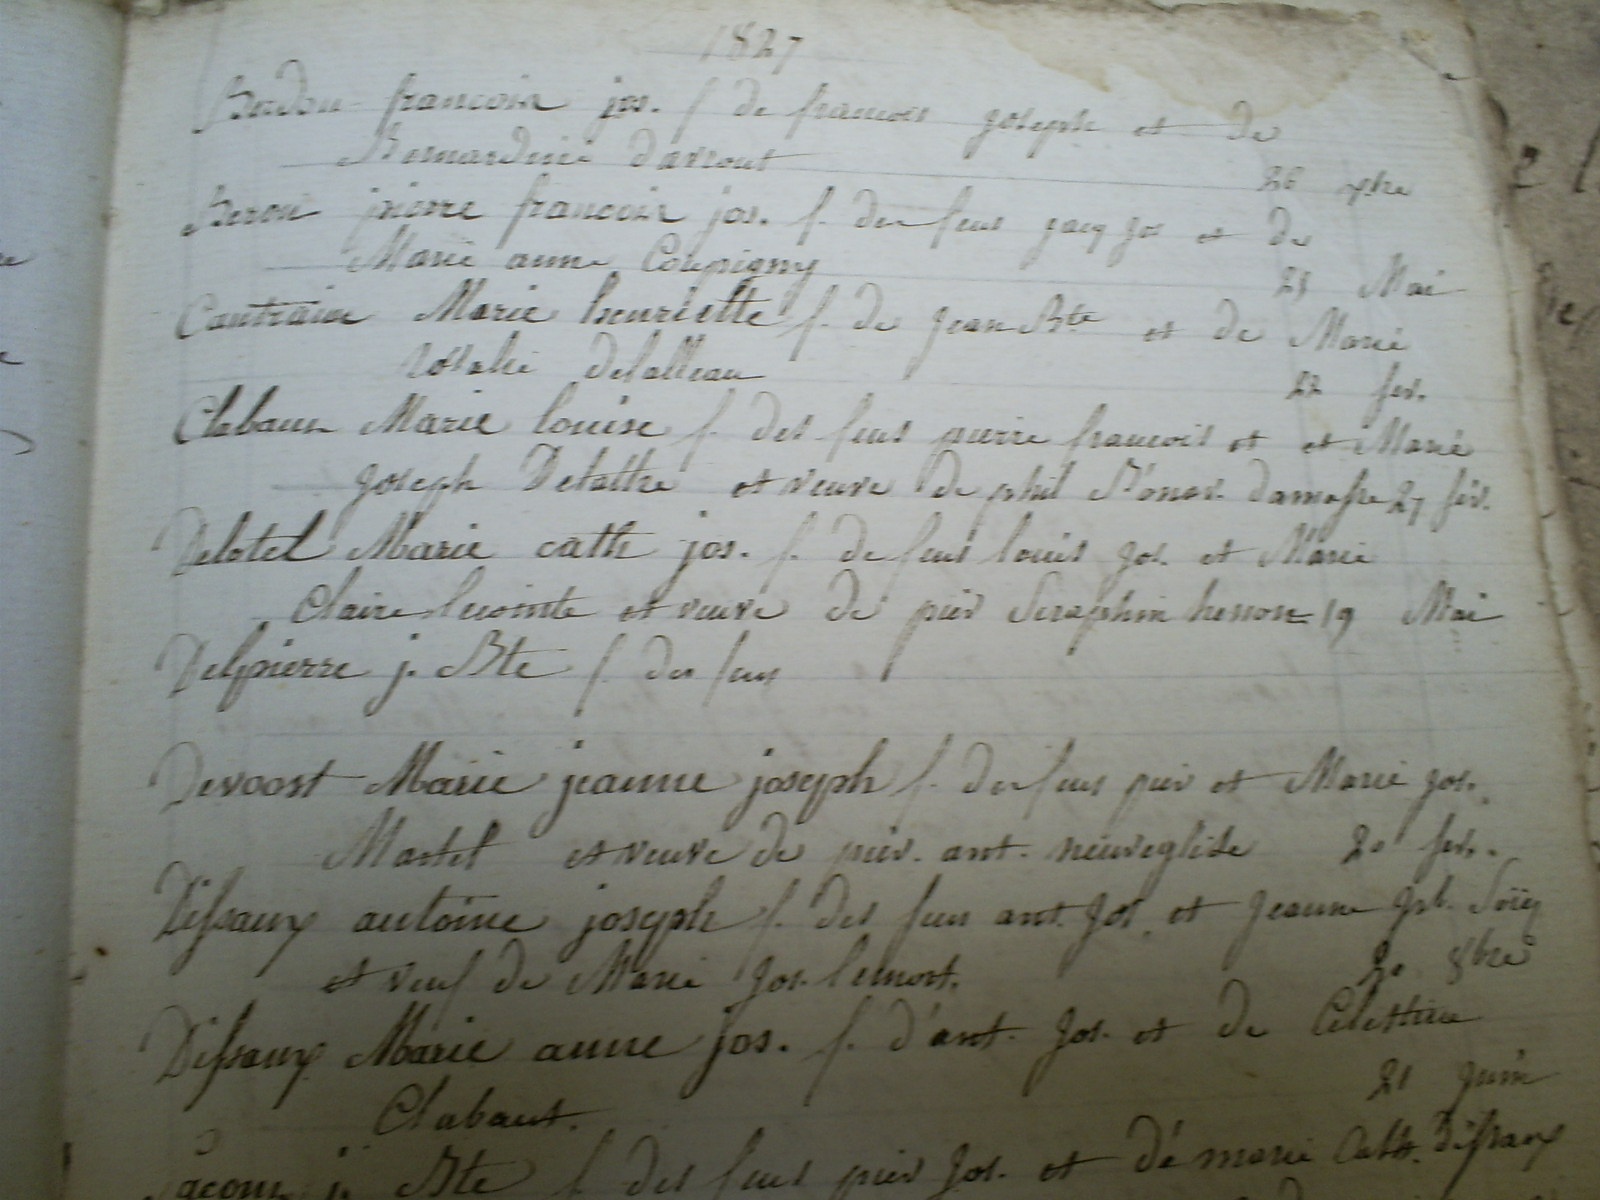 1827
francois jos. f de francois joseph et de
Bernardine davrout 26 xbre
Beron pierre francois jos. f. des feus jacq jos et de
Marie anne Coupigny 25 Mai
Cantrainne Marie henriette f. de jean Bte et de Marie
rosalie delalleau 22 fev.
Clabaux Marie louise f. des feus pierre francois et et Marie
joseph Delattre et veuve de phil damasse 27 fev.
Delotel Marie cath jos. f. de feus louis jos. et Marie
Claire lecointe et veuve de pier Seraphin henon 19 Mai
Delpierre j. Bte f des feus
Devoost Marie jeanne joseph f. des feus pier et Marie jos.
Martel et veuve de pier. ant. neuveglise 20 fev.
Dissaux antoine joseph f. des feus ant. jos. et jeanne
et veuf de Marie jos. lemort. 20 8bre
Dissaux Marie anne jos. f. d'ant. jos. et de Celestine
Clabaut. 21 juin
j. Bte f des feus pier jos. et de marie Cath. Dissaux